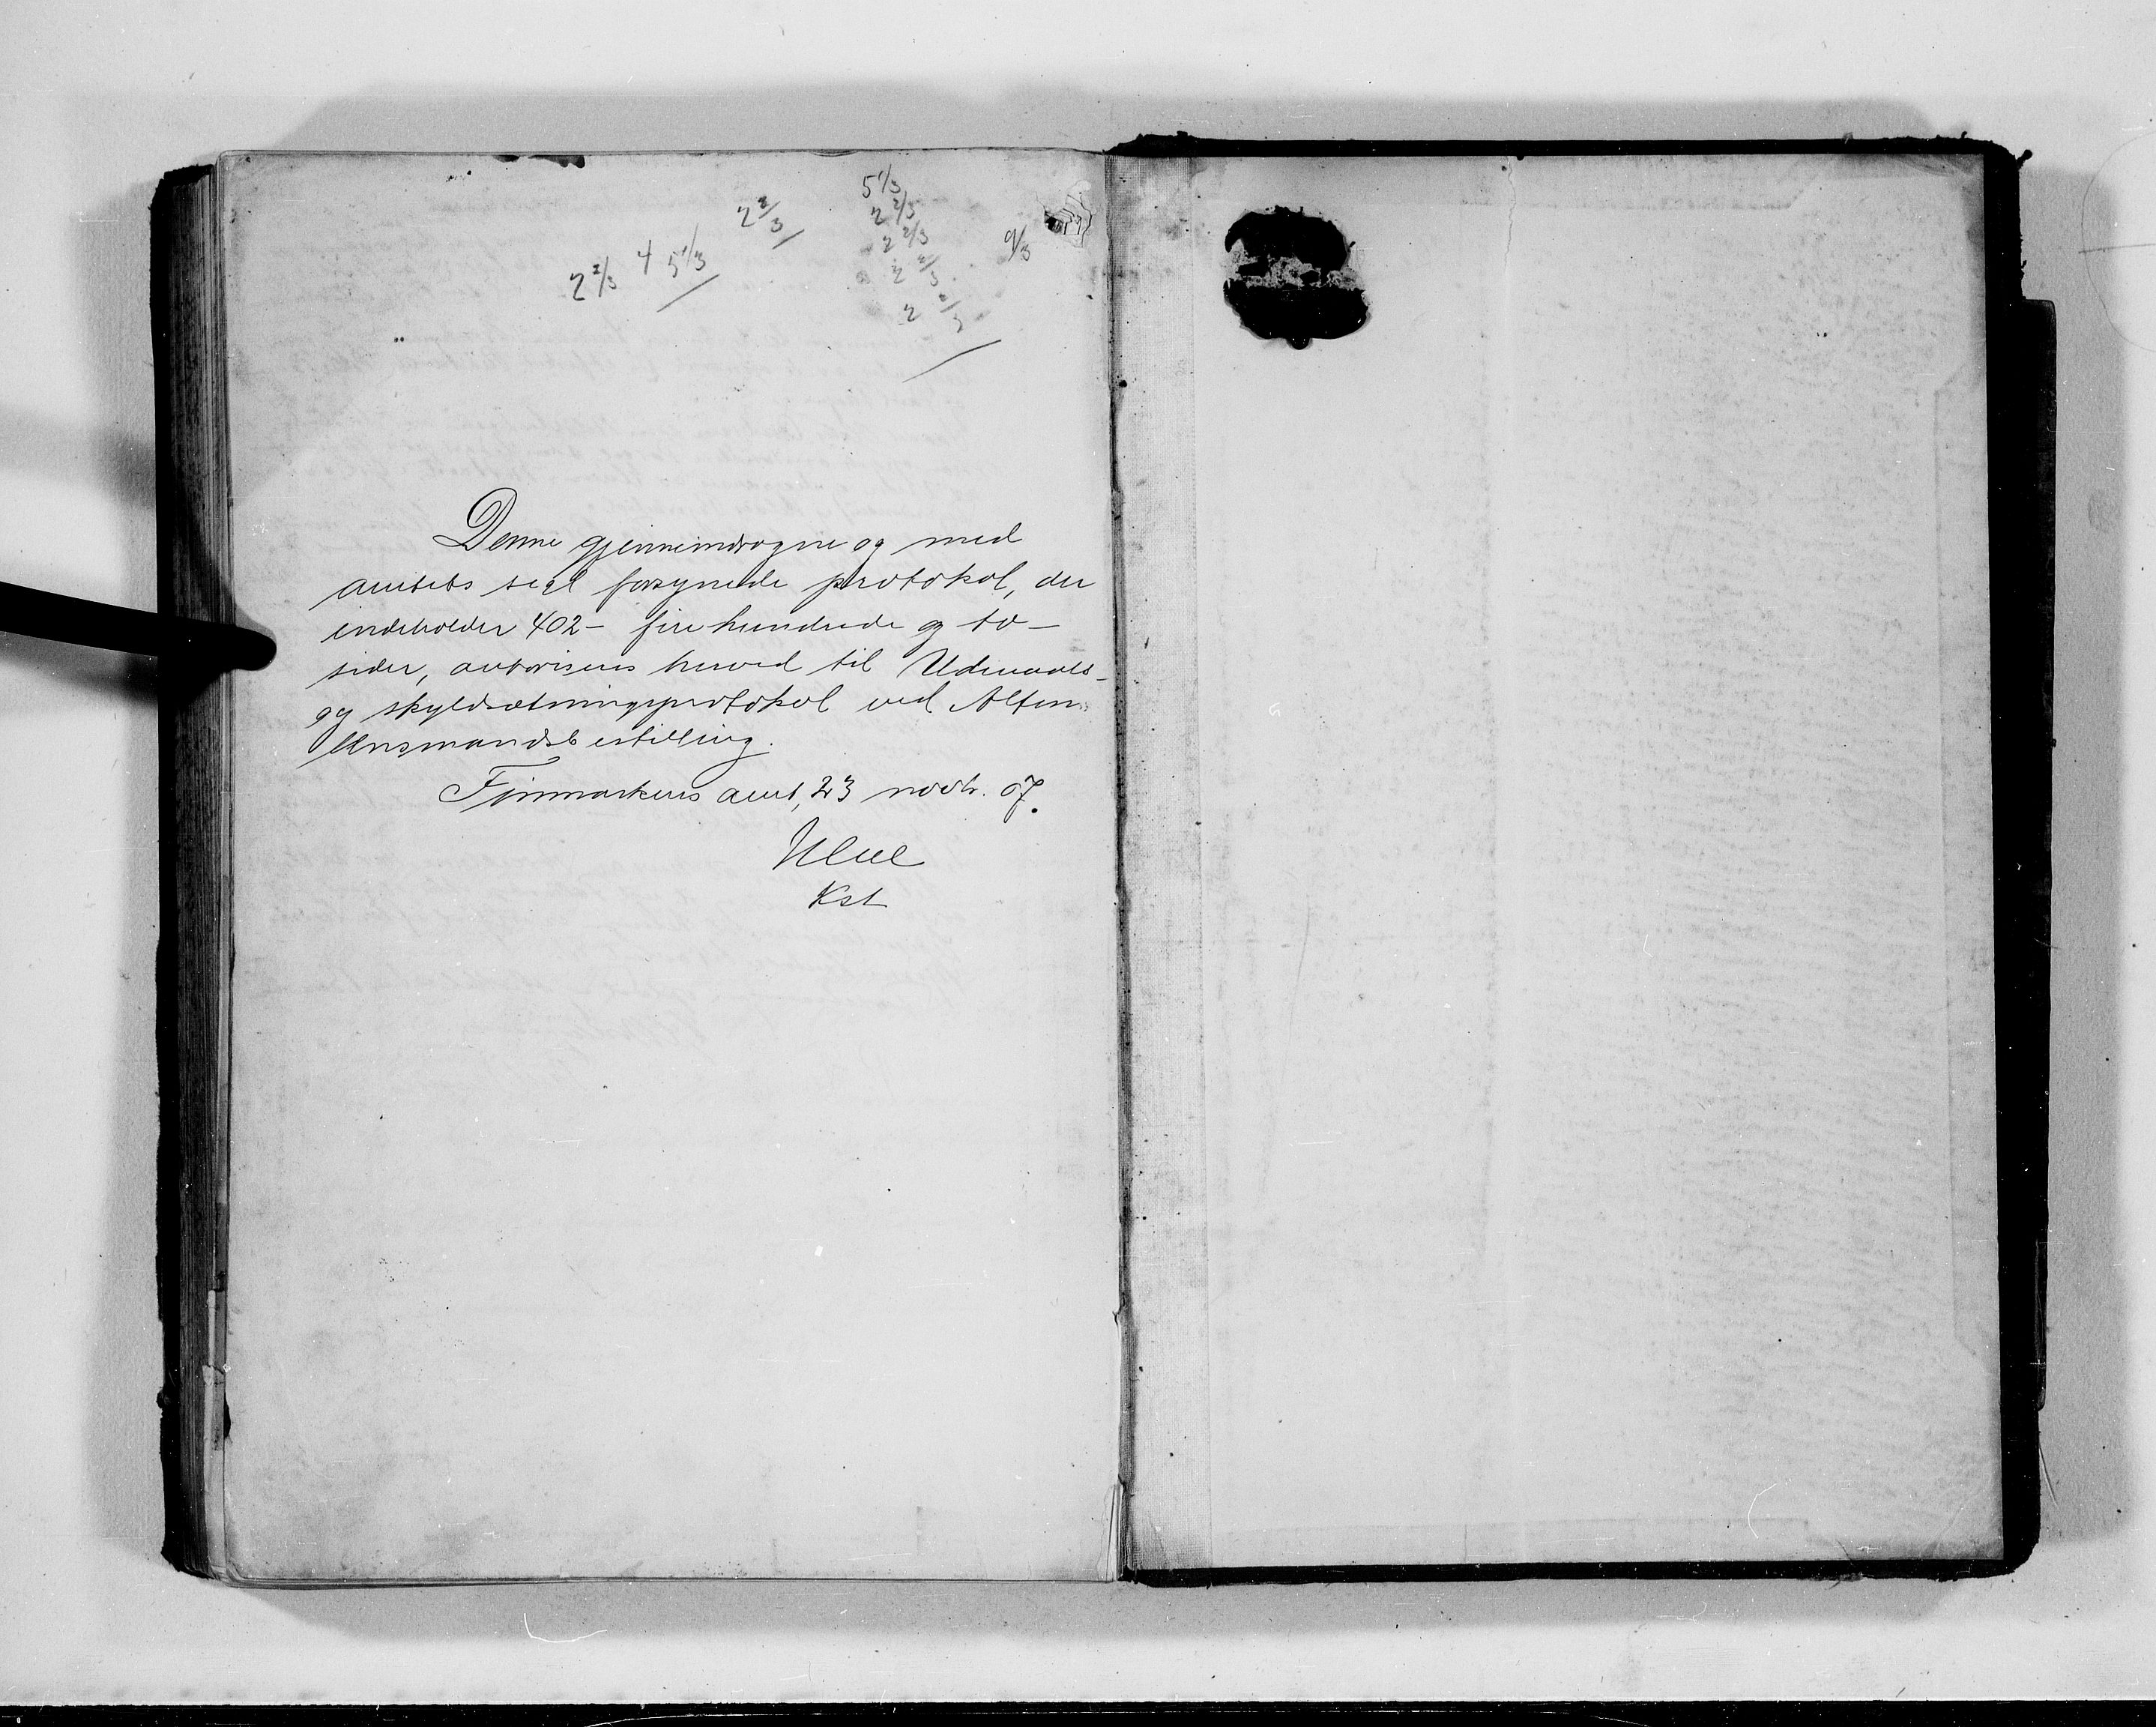 2 2/3
5 1/3
2 2/3
2 2/3
2 2/3
2 2/3
9/3
2 2/3 4 5 1/3
Denne gjennemdragne og med
amtets segl forsynede protokol, der
indeholder 402 - fire hundrede og to -
sider, autoriseres herved til Udmaals-
og skyldsætningsprotokol ved Alten
lensmandsbestilling.
Finmarkens amt, 23 novbr. 07.
Kst